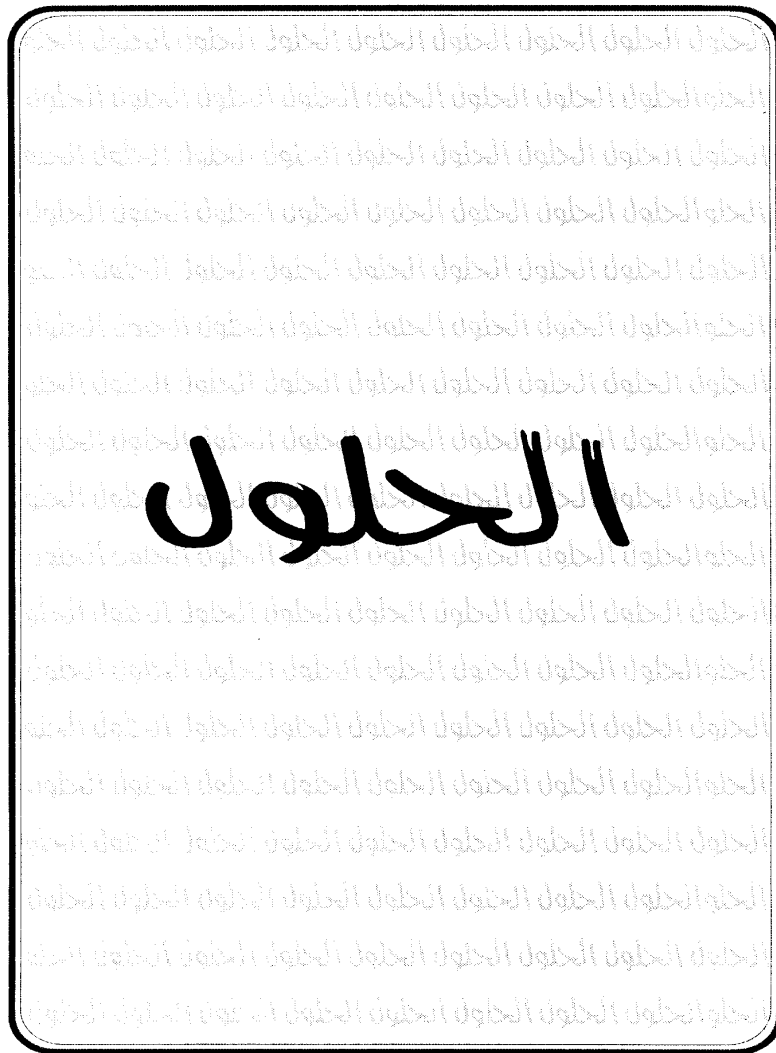 الحلول